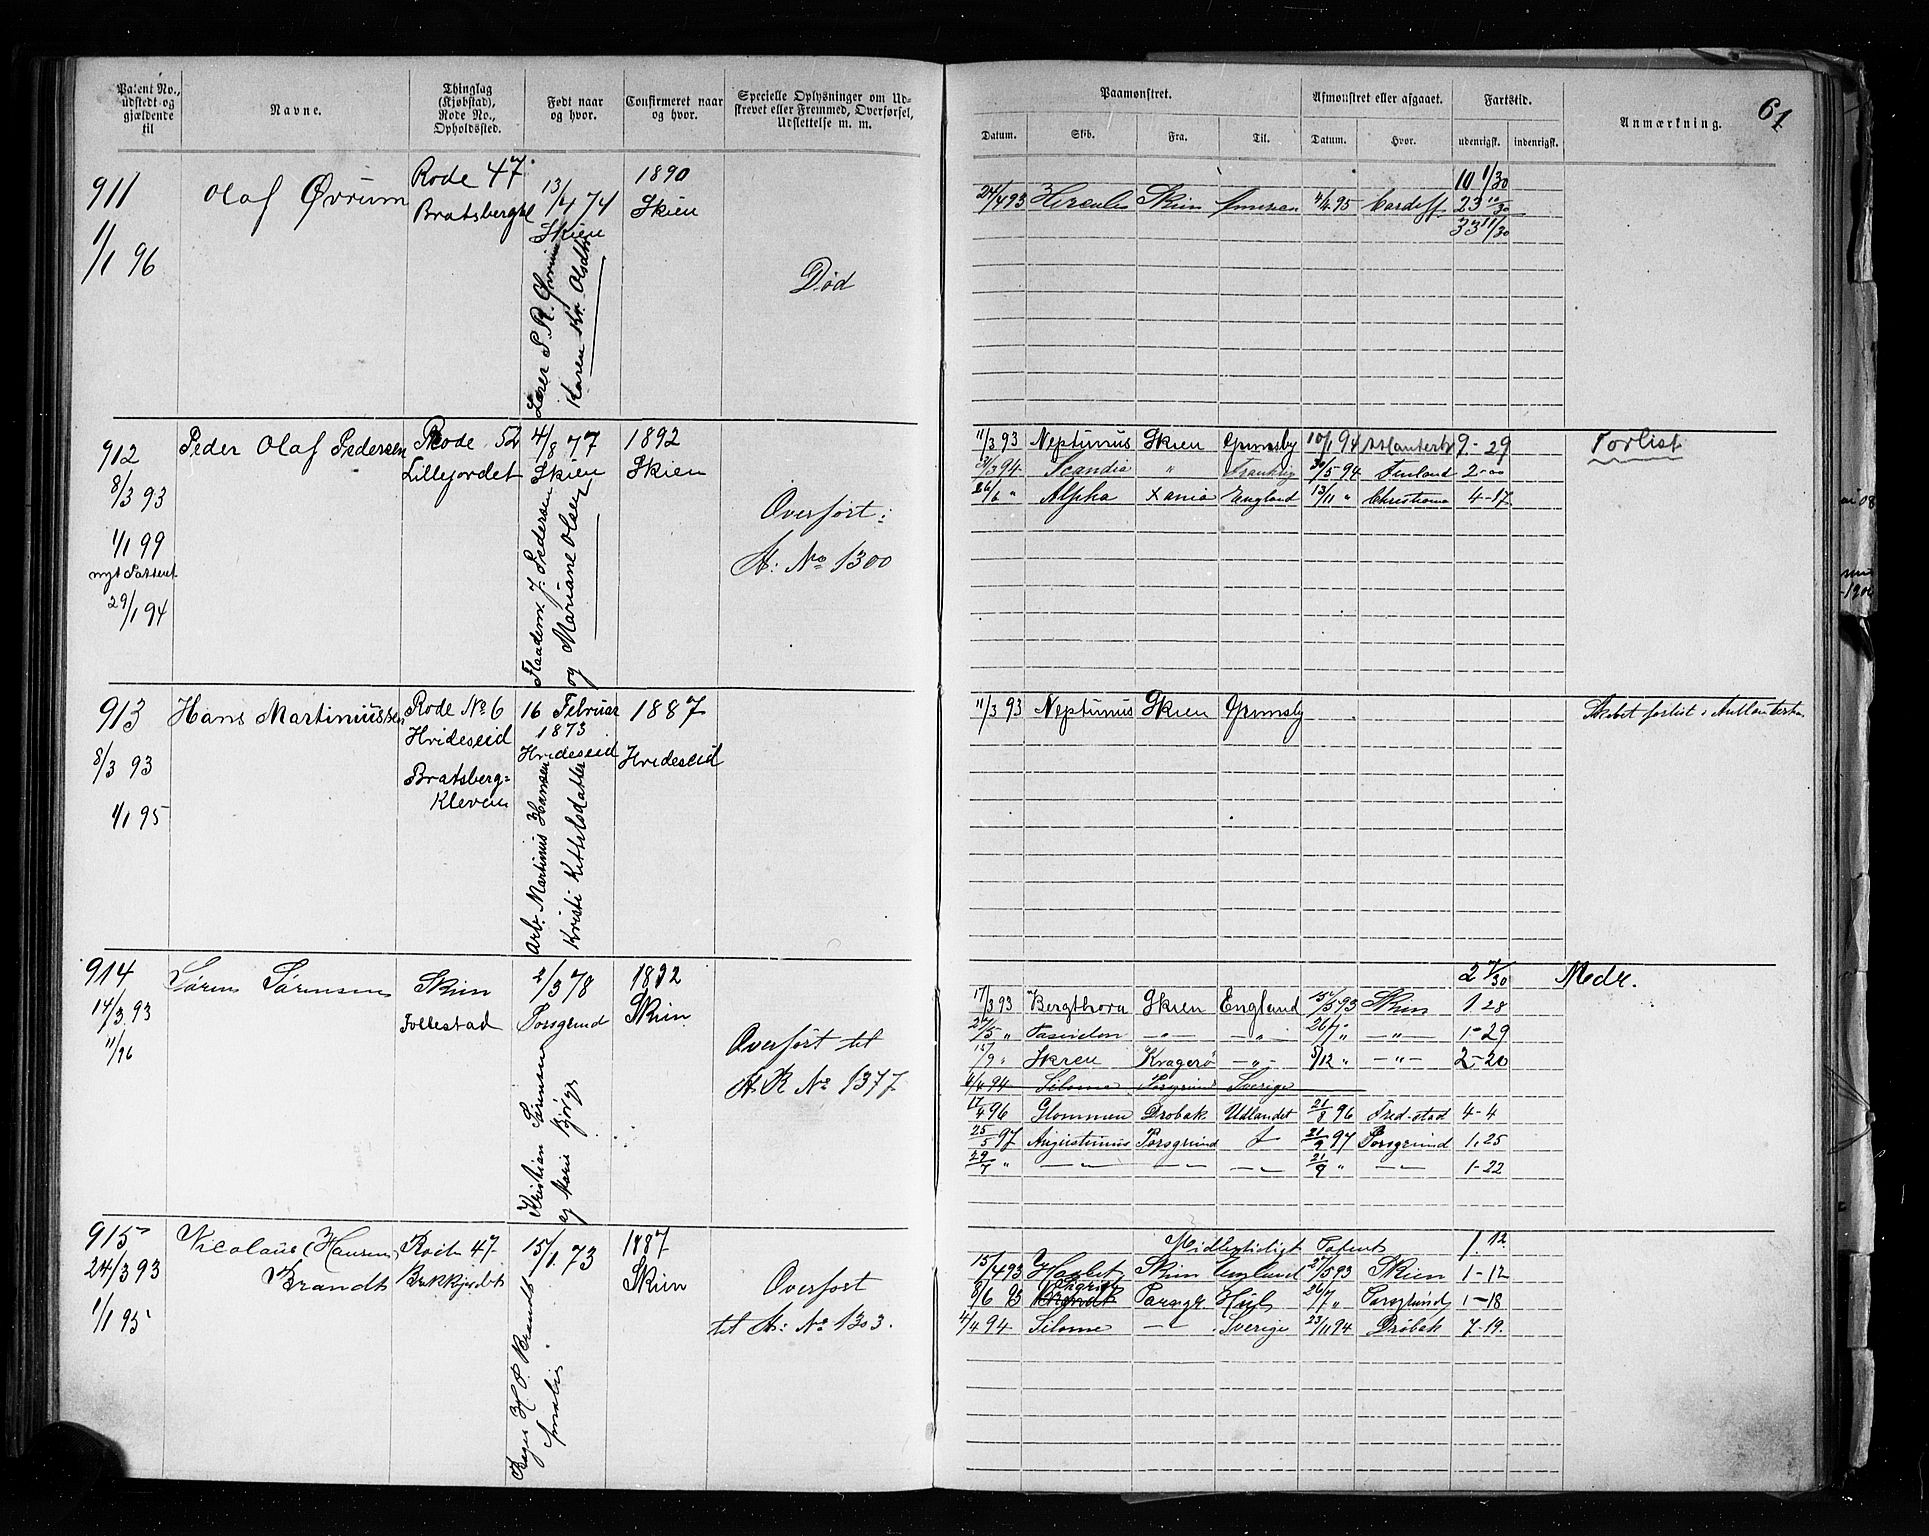 Patent No., udstedt og gjældende til
Navne.
Thinglag (Kjøbstad), Rode No., Opholdssted.
Født naar og hvor.
Confirmeret naar og hvor.
Specielle Oplysninger om Udskrevet eller Fremmed, Overførsel, Udslettelse m. m.
Paamønstret.
Afmønstret eller afgaaet.
Fartstid.
Anmærkning.
61
Datum. Skib. Fra. Til. Datum. Hvor. udenrigsk. indenrigsk.
911
1/1 96
Olaf Øvrum
Rode 47.
Bratsbergkl
13/4 74
Skien
Lærer P. R. Øvrum
Karen Kr. Olsdtr
1890
Skien
Død
10 1/30
24/4 93 Hercules Skien 4/4 95 Cardiff 23 10/30
33 11/30
912
8/3 93
1/1 99
nyt Pattent
29/1 94
Peder Olaf Pedersen
Rode 52
Lillejordet
4/8 77
Skien
J. Pedersen
og Mariane Olsen
1892
Skien
Overført:
A: No 1300
11/3 93 Neptunus Skien Grimsby 10/1 94 9-29
Forlist
31/3 94 Scandia " Frankrig 30/5 94 Finland 2-00
26/6 " Alpha Xania England 13/11 " Christiania 4-17
913
8/3 93
1/1 95
Hans Martiniussen
Rode No 6
Hvideseid
Bratsberg=
Kleven
16 Februar
1873
Hvideseid
Arb. Martinius Hansen
Kristi Kittilsdatter
1887
Hvideseid
11/3 93 Neptunus Skien Grimsby
Skibet forlist i
914
14/3 93
1/1 96
Søren Sørensen
Skien
Follestad
2/3 78
Porsgrund
Kristian Sørensen
og Marie Bjørge
1892
Skien
Overført til
A R No 1377
2 7/30 Medr.
17/3 93 Bergthora Skien England 15/5 93 Skien 1-28
27/5 " Poseidon -"- -"- 26/7 " -"- 1-29
15/9 " Skien Kragerø -"- 5/12 " -"- 2-20
4/4 94 Silome Porsgrund Sverige
17/4 96 Glommen Drøbak Udlandet 21/8 96 Fred-stad 4-4
25/5 97 Augustinus Porsgrund 21/9 97 Porsgrund 1.25
29/7 " -"- -"- -"- 21/9 " -"- 1-22
915
24/3 93
1/1 95
Nicolaus (Hansen)
Brandt
Rode 47-
15/1 73
Bager H. P. Brandt
Amalie
1887
Skien
Overført
til A: No 1303.
Midlertidigt Patent 1. 12.
15/4 93 Skien England 27/5 93 Skien 1-12
8/6 93 Porsgr. Hull 26/7 " Porsgrund 1-18
4/4 94 Silome -"- Sverige 23/11 94 Drøbak 7-19.